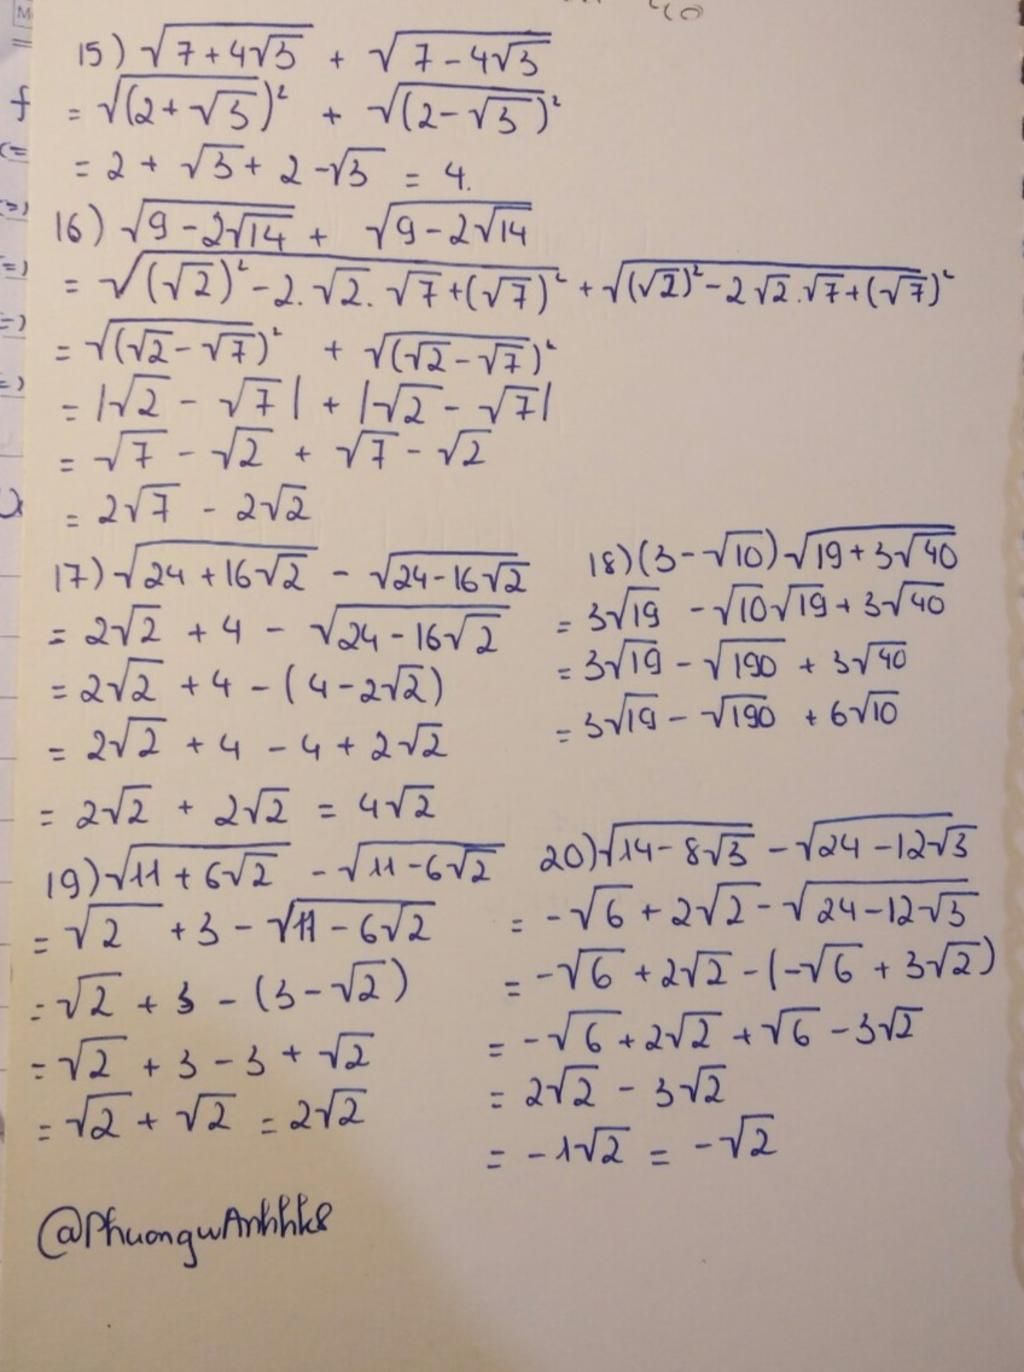 15) √(7+4√3) + √(7-4√3)
= √(2+√3)² + √(2-√3)²
= 2 + √3 + 2 - √3 = 4.
16) √(9-2√14) + √(9-2√14)
= √((√2)² - 2.√2.√7 + (√7)²) + √((√2)² - 2√2.√7 + (√7)²)
= √(√2-√7)² + √(√2-√7)²
= |√2 - √7| + |√2 - √7|
= √7 - √2 + √7 - √2
= 2√7 - 2√2
17) √(24+16√2) - √(24-16√2)
= 2√2 + 4 - √(24-16√2)
= 2√2 + 4 - (4-2√2)
= 2√2 + 4 - 4 + 2√2
= 2√2 + 2√2 = 4√2
18) (3-√10)√(19+3√40)
= 3√19 - √10√19 + 3√40
= 3√19 - √190 + 3√40
= 3√19 - √190 + 6√10
19) √(11+6√2) - √(11-6√2)
= √2 + 3 - √(11-6√2)
= √2 + 3 - (3-√2)
= √2 + 3 - 3 + √2
= √2 + √2 = 2√2
20) √(14-8√3) - √(24-12√3)
= -√6 + 2√2 - √(24-12√3)
= -√6 + 2√2 - (-√6 + 3√2)
= -√6 + 2√2 + √6 - 3√2
= 2√2 - 3√2
= -1√2 = -√2
@PhuongwAnhhk8